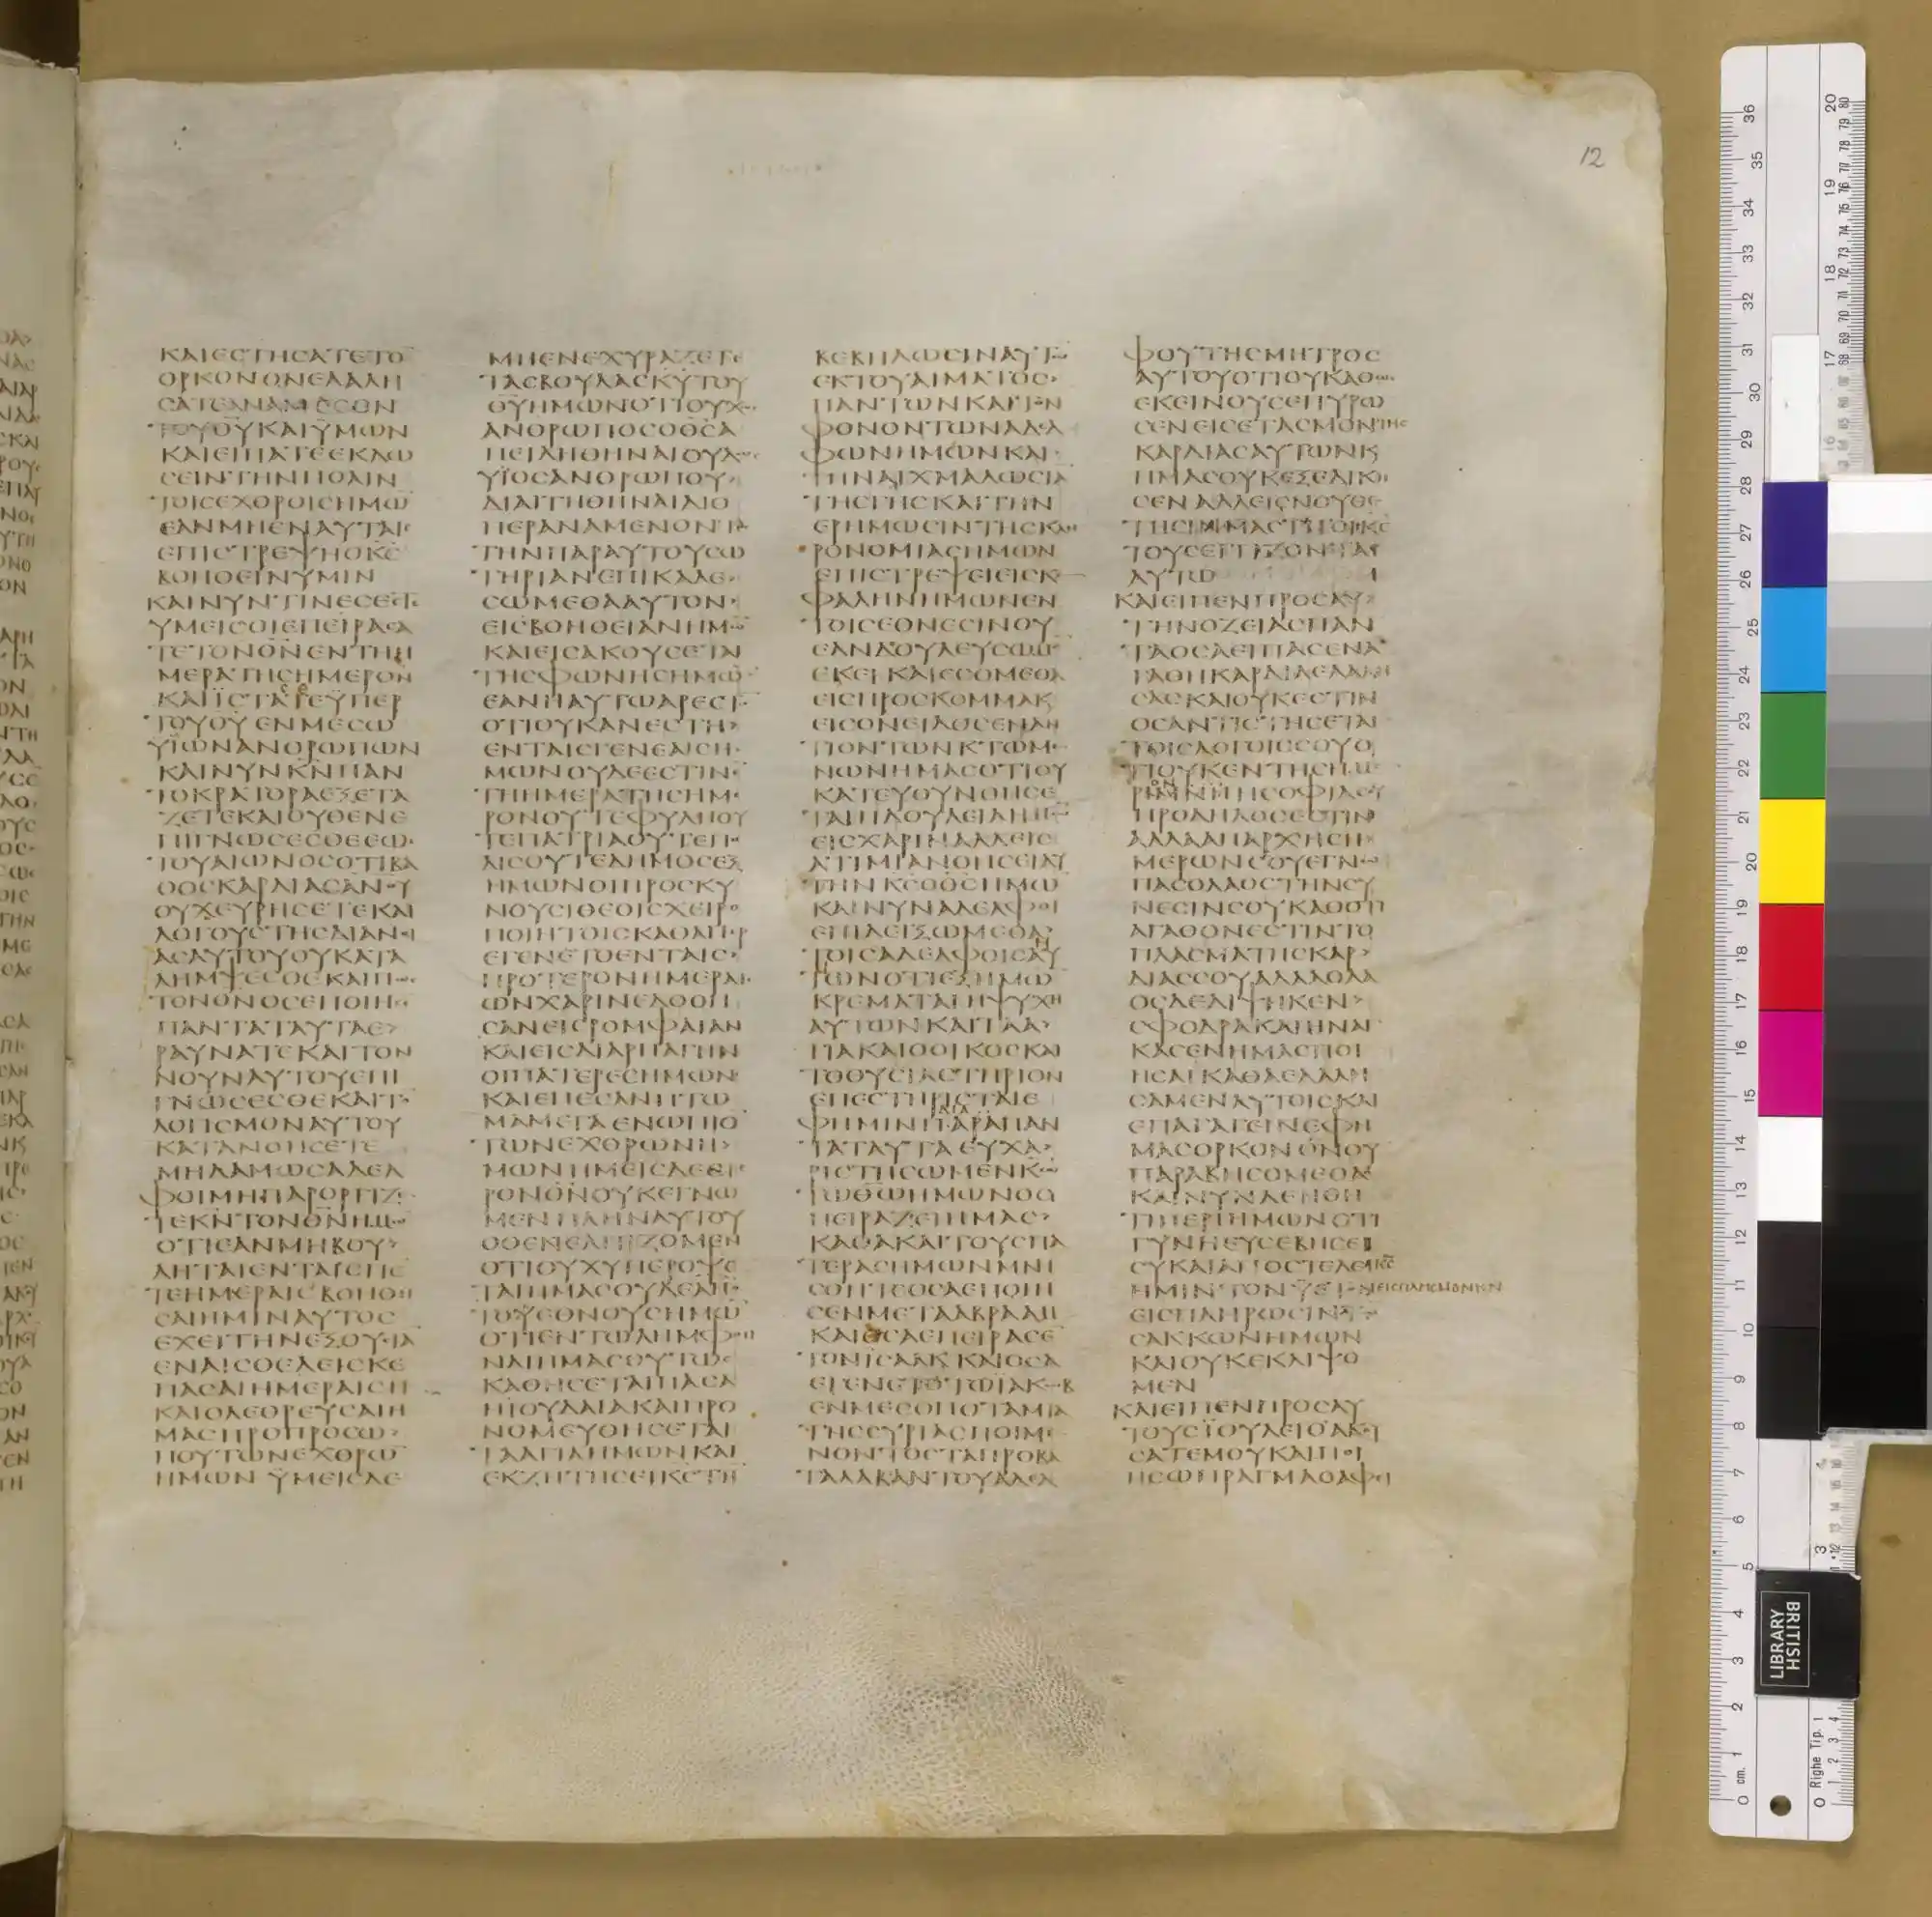 12
ΚΑΙΕϹΤΗϹΑΤΕΤΟ
ΟΡΚΟΝΟΝΕΛΑΛΗ
ϹΑΤΕΑΝΑΜΕϹΟΝ
ΤΟΥΘΥΚΑΙΫΜΩΝ
ΚΑΙΕΙΠΑΤΕΕΚΔΩ
ϹΕΙΝΤΗΝΠΟΛΙΝ
ΤΟΙϹΕΧΘΡΟΙϹΗΜΩ
ΕΑΝΜΗΕΝΑΥΤΑΙϹ
ΕΠΙϹΤΡΕΨΗΟΚϹ
ΒΟΗΘΕΙΝΥΜΙΝ
ΚΑΙΝΥΝΤΙΝΕϹΕϹΤΕ
ΥΜΕΙϹΟΙΕΠΕΙΡΑϹΑ
ΤΕΤΟΝΘΝΕΝΤΗΗ
ΜΕΡΑΤΗϹΗΜΕΡΟΝ
ΚΑΙΪϹΤΑΤΕΫΠΕΡ
ΤΟΥΘΥΕΝΜΕϹΩ
ΥΪΩΝΑΝΘΡΩΠΩΝ
ΚΑΙΝΥΝΚΝΠΑΝ
ΤΟΚΡΑΤΟΡΑΕΞΕΤΑ
ΖΕΤΕΚΑΙΟΥΘΕΝΕ
ΠΙΓΝΩϹΕϹΘΕΕΩϹ
ΤΟΥΑΙΩΝΟϹΟΤΙΒΑ
ΘΟϹΚΑΡΔΙΑϹΑΝΟΥ
ΟΥΧΕΥΡΗϹΕΤΕΚΑΙ
ΛΟΓΟΥϹΤΗϹΔΙΑΝΟΙ
ΑϹΑΥΤΟΥΟΥΚΑΤΑ
ΛΗΜΨΕϹΘΕΚΑΙΠΩϹ
ΤΟΝΘΝΟϹΕΠΟΙΗϹΕ
ΠΑΝΤΑΤΑΥΤΑΕ>
ΡΑΥΝΑΤΕΚΑΙΤΟΝ
ΝΟΥΝΑΥΤΟΥΕΠΙ
ΓΝΩϹΕϹΘΕΚΑΙΤΟ
ΛΟΓΙϹΜΟΝΑΥΤΟΥ
ΚΑΤΑΝΟΗϹΕΤΕ
ΜΗΔΑΜΩϹΑΔΕΛ
ΦΟΙΜΗΠΑΡΟΡΓΙΖΕ
ΤΕΚΝΤΟΝΘΝΗΜΩ
ΟΤΙΕΑΝΜΗΒΟΥ>
ΛΗΤΑΙΕΝΤΑΙϹΠΕ
ΤΕΗΜΕΡΑΙϹΒΟΗΘΗ
ϹΑΙΗΜΙΝΑΥΤΟϹ
ΕΧΕΙΤΗΝΕΞΟΥϹΙΑ
ΕΝΑΙϹΘΕΛΕΙϹΚΕ
ΠΑϹΑΙΗΜΕΡΑΙϹΗ
ΚΑΙΟΛΕΘΡΕΥϹΑΙΗ
ΜΑϹΠΡΟΠΡΟϹΩ>
ΠΟΥΤΩΝΕΧΘΡΩ
ΗΜΩΝΫΜΕΙϹΔΕ
ΜΗΕΝΕΧΥΡΑΖΕΤΕ
ΤΑϹΒΟΥΛΑϹΚΥΤΟΥ
ΘΥΗΜΩΝΟΤΙΟΥΧΩϹ
ΑΝΘΡΩΠΟϹΟΘϹΑ
ΠΕΙΛΗΘΗΝΑΙΟΥΔΩϹ
ΥΪΟϹΑΝΘΡΩΠΟΥ>
ΔΙΑΙΤΗΘΗΝΑΙΔΙΟ
ΠΕΡΑΝΑΜΕΝΟΝΤΕ
ΤΗΝΠΑΡΑΥΤΟΥϹΩ
ΤΗΡΙΑΝΕΠΙΚΑΛΕ
ϹΩΜΕΘΑΑΥΤΟΝ
ΕΙϹΒΟΗΘΕΙΑΝΗΜΩ
ΚΑΙΕΙϹΑΚΟΥϹΕΤΑΙ
ΤΗϹΦΩΝΗϹΗΜΩ
ΕΑΝΗΑΥΤΩΑΡΕϹΤΟ
ΟΤΙΟΥΚΑΝΕϹΤΗ>
ΕΝΤΑΙϹΓΕΝΕΑΙϹΗ
ΜΩΝΟΥΔΕΕϹΤΙΝ
ΤΗΗΜΕΡΑΤΗϹΗΜΕ
ΡΟΝΟΥΤΕΦΥΛΗΟΥ
ΤΕΠΑΤΡΙΑΟΥΤΕΠΟ
ΛΙϹΟΥΤΕΔΗΜΟϹΕΞ
ΗΜΩΝΟΙΠΡΟϹΚΥ
ΝΟΥϹΙΘΕΟΙϹΧΕΙΡΟ
ΠΟΙΗΤΟΙϹΚΑΘΑΠΕΡ
ΕΓΕΝΕΤΟΕΝΤΑΙϹ
ΠΡΟΤΕΡΟΝΗΜΕΡΑΙϹ
ΩΝΧΑΡΙΝΕΔΟΘΗ
ϹΑΝΕΙϹΡΟΜΦΑΙΑΝ
ΚΑΙΕΙϹΔΙΑΡΠΑΓΗΝ
ΟΙΠΑΤΕΡΕϹΗΜΩΝ
ΚΑΙΕΠΕϹΑΝΠΤΩ
ΜΑΜΕΓΑΕΝΩΠΙΟ
ΤΩΝΕΧΘΡΩΝΗ>
ΜΩΝΗΜΕΙϹΔΕΕΤΕ
ΡΟΝΘΝΟΥΚΕΓΝΩ
ΜΕΝΠΛΗΝΑΥΤΟΥ
ΟΘΕΝΕΛΠΙΖΟΜΕΝ
ΟΤΙΟΥΧΥΠΕΡΟΨΕ
ΤΑΙΗΜΑϹΟΥΔΕΑΠΟ
ΤΟΥΕΘΝΟΥϹΗΜΩ
ΟΤΙΕΝΤΩΛΗΜΦΘΗ
ΝΑΙΗΜΑϹΟΥΤΩϹ
ΚΑΘΗϹΕΤΑΙΠΑϹΑ
ΗΙΟΥΔΑΙΑΚΑΙΠΡΟ
ΝΟΜΕΥΘΗϹΕΤΑΙ
ΤΑΑΓΙΑΗΜΩΝΚΑΙ
ΕΚΖΗΤΗϹΕΙΚϹΤΗ
ΒΕΒΗΛΩϹΙΝΑΥΤΩ
ΕΚΤΟΥΑΙΜΑΤΟϹ
ΠΑΝΤΩΝΚΑΙΤΟΝ
ΦΟΝΟΝΤΩΝΑΔΕΛ
ΦΩΝΗΜΩΝΚΑΙ
ΤΗΝΑΙΧΜΑΛΩϹΙΑ
ΤΗϹΓΗϹΚΑΙΤΗΝ
ΕΡΗΜΩϹΙΝΤΗϹΚΛΗ
ΡΟΝΟΜΙΑϹΗΜΩΝ
ΕΠΙϹΤΡΕΨΕΙΕΙϹΚΕ
ΦΑΛΗΝΗΜΩΝΕΝ
ΤΟΙϹΕΘΝΕϹΙΝΟΥ
ΕΑΝΔΟΥΛΕΥϹΩΜΕ
ΕΚΕΙΚΑΙΕϹΟΜΕΘΑ
ΕΙϹΠΡΟϹΚΟΜΜΑΚ
ΕΙϹΟΝΕΙΔΟϹΕΝΑΝ
ΤΙΟΝΤΩΝΚΤΩΜΕ
ΝΩΝΗΜΑϹΟΤΙΟΥ
ΚΑΤΕΥΘΥΝΘΗϹΕ
ΤΑΙΗΔΟΥΛΕΙΑΗΜΩ
ΕΙϹΧΑΡΙΝΑΛΛΕΙϹ
ΑΤΙΜΙΑΝΘΗϹΕΙΑΥ
ΤΗΝΚϹΟΘϹΗΜΩ
ΚΑΙΝΥΝΑΔΕΛΦΟΙ
ΕΠΙΔΕΙΞΩΜΕΘΑ
ΤΟΙϹΑΔΕΛΦΟΙϹΑΥ
ΤΩΝΟΤΙΕΞΗΜΩ
ΚΡΕΜΑΤΑΙΗΨΥΧΗ
ΑΥΤΩΝΚΑΙΤΑΑ>
ΓΙΑΚΑΙΟΟΙΚΟϹΚΑΙ
ΤΟΘΥϹΙΑϹΤΗΡΙΟΝ
ΕΠΕϹΤΗΡΙϹΤΑΙΕ
ΦΗΜΙΝΠΑΡΑΠΑΝ
ΤΑΤΑΥΤΑΕΥΧΑ>
ΡΙϹΤΗϹΩΜΕΝΚΩ
ΤΩΘΩΗΜΩΝΟϹ
ΠΕΙΡΑΖΕΙΗΜΑϹ>
ΚΑΘΑΚΑΙΤΟΥϹΠΑ
ΤΕΡΑϹΗΜΩΝΜΝΗ
ϹΘΗΤΕΟϹΑΕΠΟΙΗ
ϹΕΝΜΕΤΑΑΒΡΑΑΜ
ΚΑΙΟϹΑΕΠΕΙΡΑϹΕ
ΤΟΝΙϹΑΑΚΚΑΙΟϹΑ
ΕΓΕΝΕΤΟΤΩΪΑΚΩΒ
ΕΝΜΕϹΟΠΟΤΑΜΙΑ
ΤΗϹϹΥΡΙΑϹΠΟΙΜΕ
ΝΟΝΤΟϹΤΑΠΡΟΒΑ
ΤΑΛΑΒΑΝΤΟΥΑΔΕΛ
ΦΟΥΤΗϹΜΗΤΡΟϹ
ΑΥΤΟΥΟΤΙΟΥΚΑΘΩϹ
ΕΚΕΙΝΟΥϹΕΠΥΡΩ
ϹΕΝΕΙϹΕΤΑϹΜΟΝΤΗϹ
ΚΑΡΔΙΑϹΑΥΤΩΝΚ
ΗΜΑϹΟΥΚΕΞΕΔΙΚΗ
ϹΕΝΑΛΛΕΙϹΝΟΥΘΕ
ΤΟΥϹΕΓΓΙΖΟΝΤΑϹ
ΑΥΤΩ
ΚΑΙΕΙΠΕΝΠΡΟϹΑΥ>
ΤΗΝΟΖΕΙΑϹΠΑΝ
ΤΑΟϹΑΕΙΠΑϹΕΝΑ
ΓΑΘΗΚΑΡΔΙΑΕΛΑΛΗ
ϹΑϹΚΑΙΟΥΚΕϹΤΙΝ
ΟϹΑΝΤΙϹΤΗϹΕΤΑΙ
ΤΟΙϹΛΟΓΟΙϹϹΟΥΟ
ΤΙΟΥΚΕΝΤΗϹΗΜΕ
ΡΟΝΗϹΟΦΙΑϹΟΥ
ΠΡΟΔΗΛΟϹΕϹΤΙΝ
ΑΛΛΑΑΠΑΡΧΗϹΗ>
ΜΕΡΩΝϹΟΥΕΓΝΩ
ΠΑϹΟΛΑΟϹΤΗΝϹΥ
ΝΕϹΙΝϹΟΥΚΑΘΟΤΙ
ΑΓΑΘΟΝΕϹΤΙΝΤΟ
ΠΛΑϹΜΑΤΗϹΚΑΡ>
ΔΙΑϹϹΟΥΑΛΛΑΟΛΑ
ΟϹΔΕΔΙΨΗΚΕΝ>
ϹΦΟΔΡΑΚΑΙΗΝΑΓ
ΚΑϹΕΝΗΜΑϹΠΟΙ
ΗϹΑΙΚΑΘΑΕΛΑΛΗ
ϹΑΜΕΝΑΥΤΟΙϹΚΑΙ
ΕΠΑΓΑΓΕΙΝΕΦΗ
ΜΑϹΟΡΚΟΝΟΝΟΥ
ΠΑΡΑΒΗϹΟΜΕΘΑ
ΚΑΙΝΥΝΔΕΗΘΗ
ΤΙΠΕΡΙΗΜΩΝΟΤΙ
ΓΥΝΗΕΥϹΕΒΗϹΕΙ
ϹΥΚΑΙΑΠΟϹΤΕΛΕΙ
ΗΜΙΝΤΟΝΫΕΤΟΝ
ΕΙϹΠΛΗΡΩϹΙΝΤΩ
ΛΑΚΚΩΝΗΜΩΝ
ΚΑΙΟΥΚΕΚΛΙΨΟ
ΜΕΝ
ΚΑΙΕΙΠΕΝΠΡΟϹΑΥ
ΤΟΥϹΪΟΥΔΕΙΘΑΚΟΥ
ϹΑΤΕΜΟΥΚΑΙΠΟΙ
ΗϹΩΠΡΑΓΜΑΟΑΦΙ
BRITISH
LIBRARY